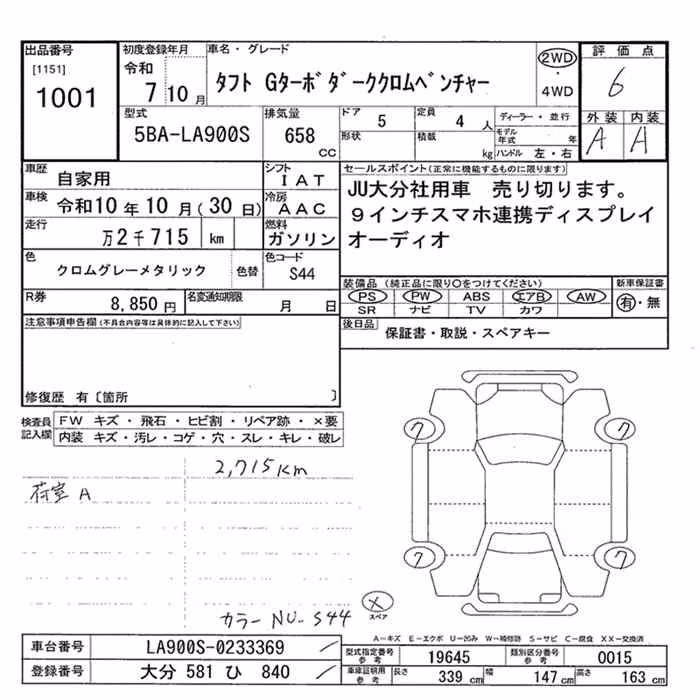 出品番号
[1151]
1001
初度登録年月
令和
7 10 月
車名・グレード
タフト Gターボダーククロムベンチャー
2WD
・
4WD
評価点
6
外装 内装
A A
型式
5BA-LA900S
排気量
658
CC
ドア
5
形状
定員
4 人
積載
kg
ディーラー・並行
モデル年式 年
ハンドル 左・右
車歴
自家用
シフト
IAT
車検
令和10年10月(30日)
冷房
AAC
走行
万2千715 km
燃料
ガソリン
色
クロムグレーメタリック
色替
色コード
S44
R券
8,850円
名変通知期限
月 日
セールスポイント(正常に機能するものに限ります)
JU大分社用車 売り切ります。
9インチスマホ連携ディスプレイ
オーディオ
装備品(純正品に限り〇をつけてください)
PS PW ABS エアB AW
SR ナビ TV カワ
新車保証書
有・無
後日品
保証書・取説・スペアキー
注意事項申告欄(不具合内容等は具体的に記入して下さい)
修復歴 有〔箇所 〕
検査員記入欄
FW キズ・飛石・ヒビ割・リペア跡・×要
内装 キズ・汚レ・コゲ・穴・スレ・キレ・破レ
2,715Km
荷室 A
カラーNO-S44
7
7
7
7
×
スペア
A－キズ E－エクボ U－凹み W－補修跡 S－サビ C－腐食 XX－交換済
車台番号
LA900S-0233369
登録番号
大分 581 ひ 840
型式指定番号
参考
19645
類別区分番号
参考
0015
車庫証明用
参考
長さ
339 cm
幅
147 cm
高さ
163 cm